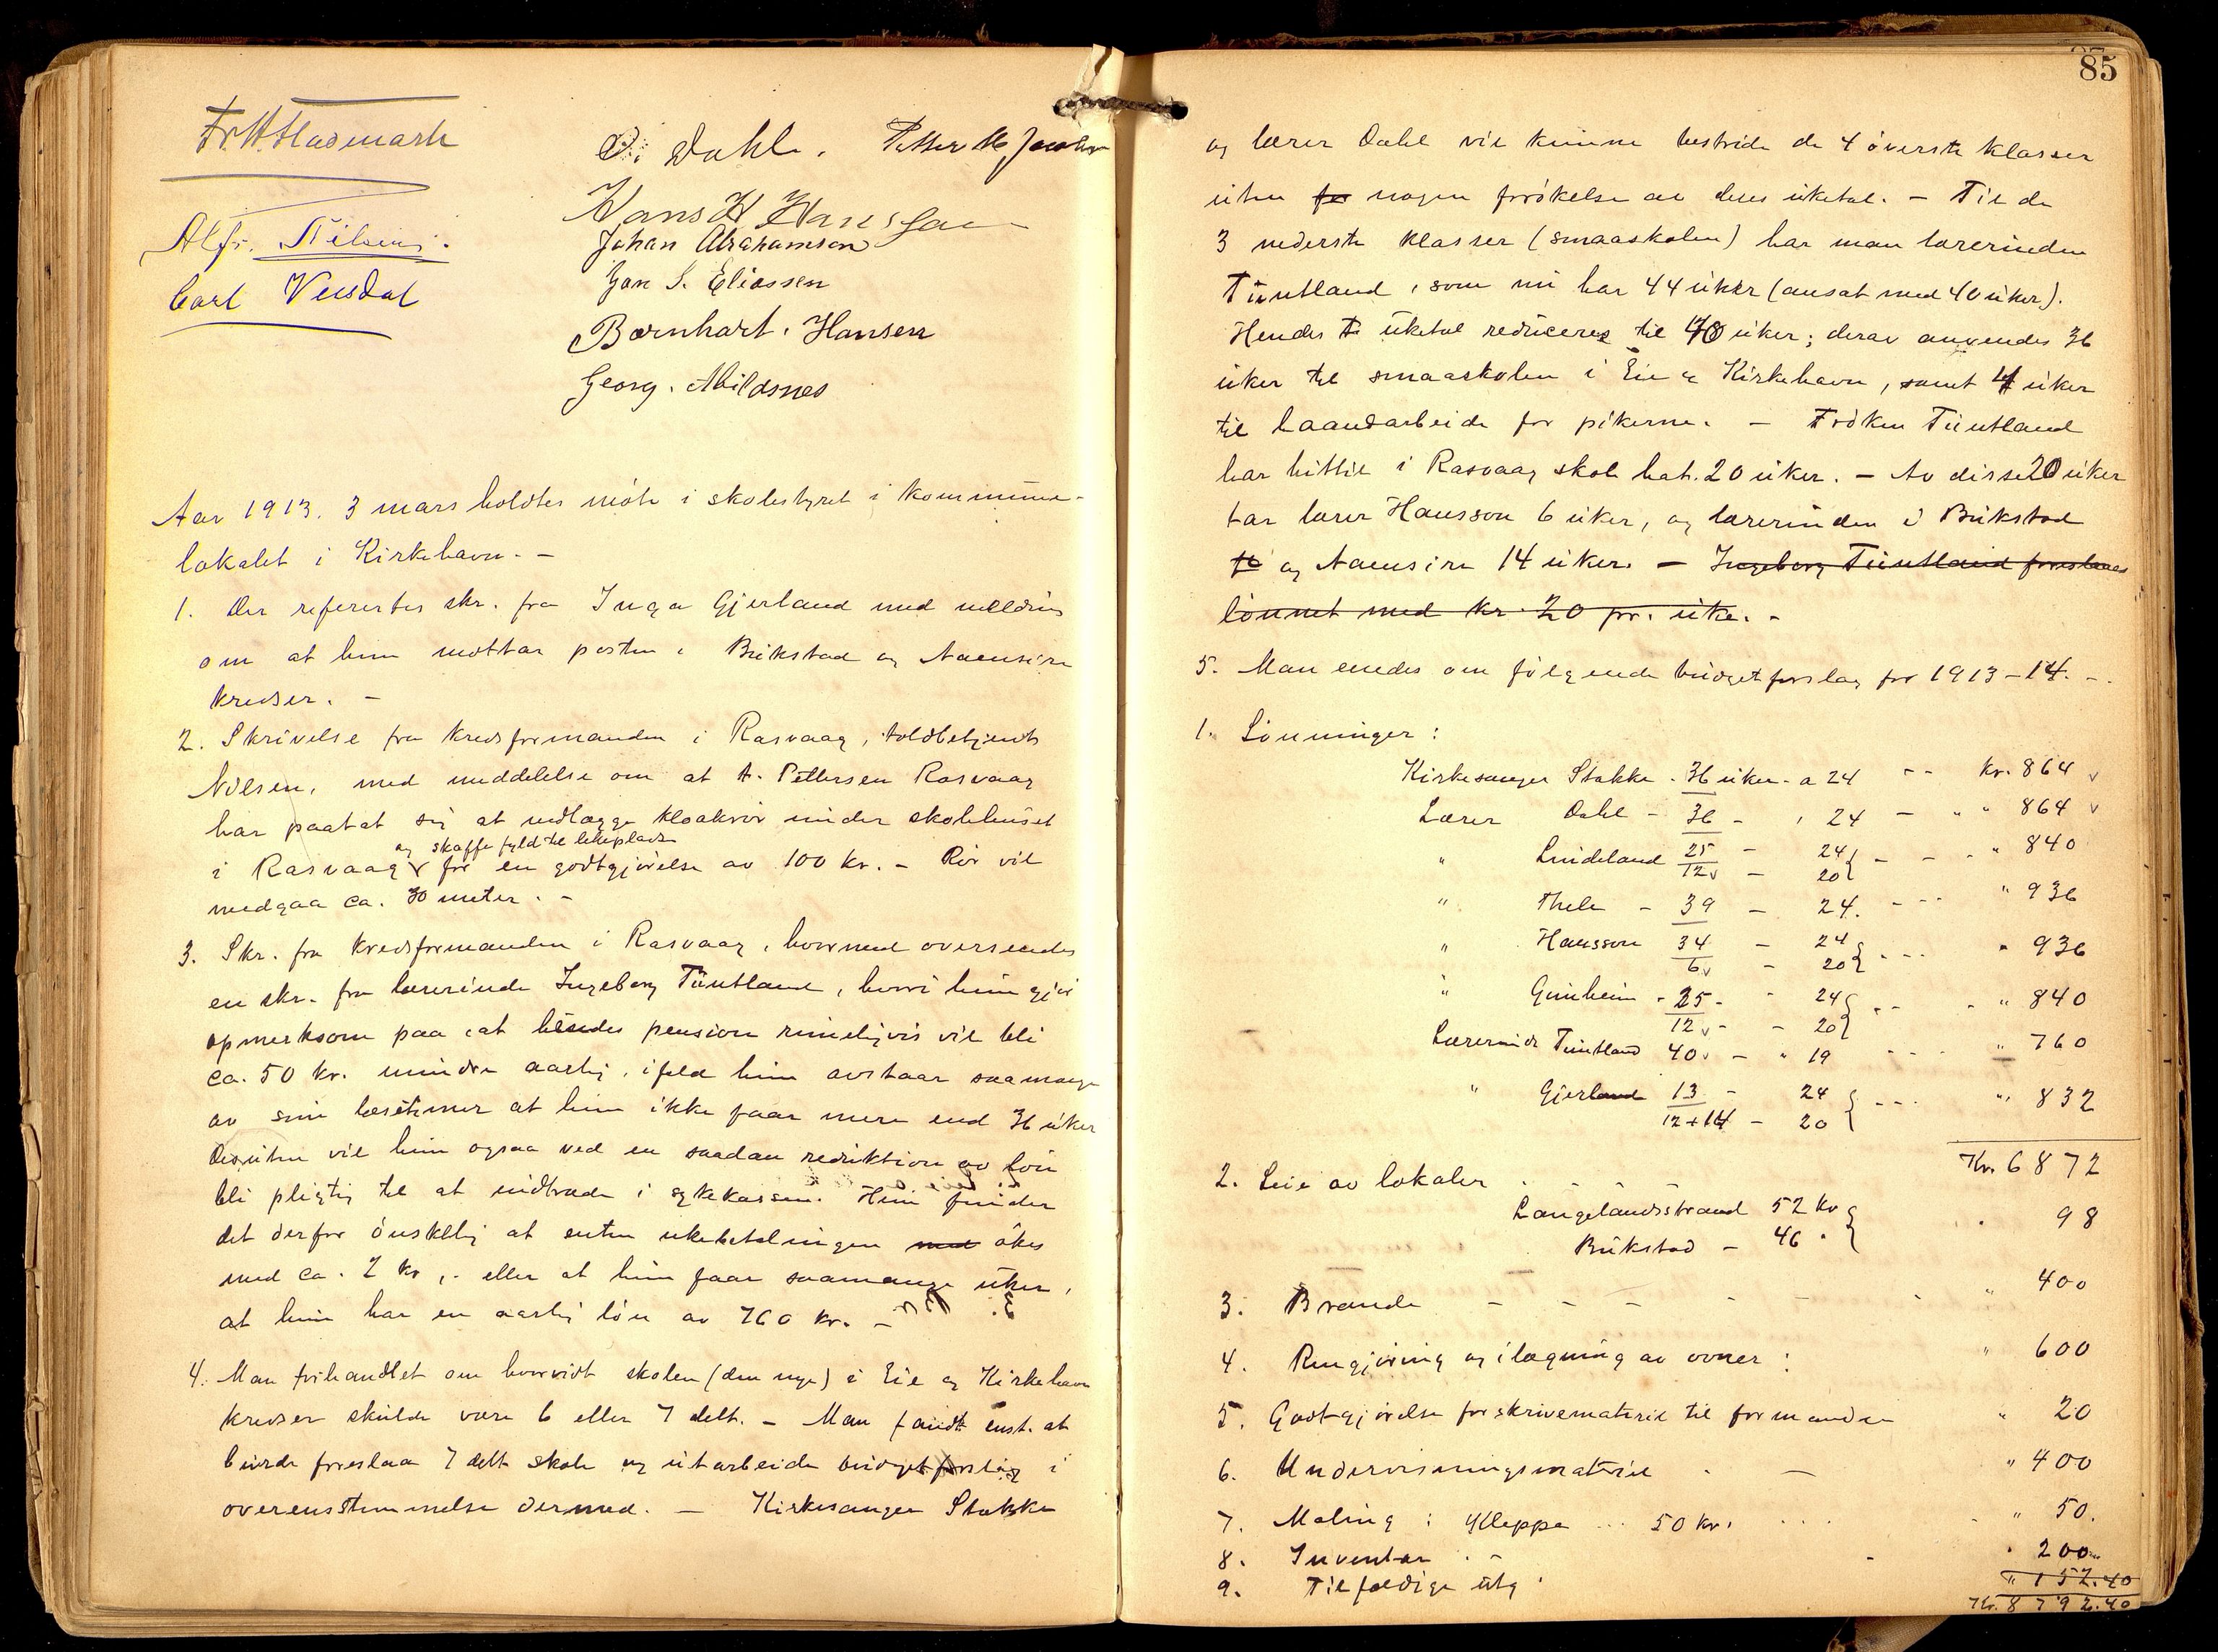 Alfr. Nilsen.
Carl Veisdal
O. Dahl. Petter M Jacobsen
Hans H Hanssen
Johan Abrahamsen
Jan S. Eliassen
Bernhart. Hansen
Georg. Abildsnes
Aar 1913. 3 mars holdtes möte i skolestyret i kommune-
lokalet i Kirkehavn. -
1. Der refertes skr. fra Inga Gjerland med melding
om at hun mottar posten i Bukstad og Naensira
kredser. -
2. Skrivelse fra kredsformanden i Rasvaag, toldbetjent
Nilsen, med meddelelse om at A. Pettersen Rasvaag
har paatat sig at nedlægge kloakrör under skolehuset
og skaffe fyld til lekeplads
i Rasvaag v for en godtgjörelse av 100 kr. - Rör vil
medgaa ca. 30 meter. -
3. Skr. fra kredsformanden i Rasvaag, hvormed oversendes
en skr. fra lærerinde Ingeborg Tüntland, hvori hun gjör
opmerksom paa, at hendes pension rimeligvis vil bli
ca. 50 kr. mindre aarlig, ifald hun avstaar saa mange
av sine læsetimer at hun ikke faar mere end 36 uker
Desuten vil hun ogsaa ved en saadan reduktion av lön
bli pligtig til at indtræde i sykekassen. Hun finder
det derfor önskelig at enten ukebetalingen med ökes
med ca. 2 kr,. eller at hun faar saamange uker,
at hun har en aarlig lön av 760 kr. -
4. Man forhandlet om hvorvidt skolen (den nye) i Eie og Kirkehavn
kredser skulde være 6 eller 7 delt. - Man fandt enst. at
burde foreslaa 7 delt skole og utarbeide budgetforslag i
overensstemmelse dermed. - Kirkesanger Stakke
85
og lærer Dahl vil kunne bestride de 4 överste klasser
uten for nogen forökelse av deres uketal. - Til de
3 nederste klasser (smaaskolen) har man lærerinden
Tüntland, som nu har 44 uker (ansat med 40 uker).
Hendes uketal reduceres til 40 uker; derav anvendes 36
uker til smaaskolen i Eie og Kirkehavn, samt 4 uker
til haandarbeide for pikerne. - Fröken Tüntland
har hittil i Rasvaag skole hat. 20 uker. - Av disse 20 uker
tar lærer Hansson 6 uker, og lærerinden i Bukstad
og Naensira 14 uker. - Ingeborg Tüntland foreslaaes
lönnet med kr. 20 pr. uke. -
5. Man enedes om fölgende budgetforslag for 1913-14. -.
1. Lönninger:
Kirkesanger Stakke - 36 uker - a 24 - - kr. 864 v
Lærer Dahl - 36 - , 24 - - " 864 v
" Lindeland 25 - 24 } - - - " 840
12 v - 20
" Thele - 39 - 24. - - - " 936
" Hansson 34 - 24 } - - - " 936
6 v - 20
" Gunheim - 25 - - 24 } - - - " 840
12 v - - 20
Lærerinde Tüntland 40 v - " 19 - - - " 760
" Gjerland 13 - 24 } - - - " 832
12 + 14 - 20
Kr. 6872
2. Leie av lokaler
Langelandsstrand 52 kr } 98
Bukstad - 46 "
3. Brænde - - - - - - " 400
4. Rengjöring og ilægning av ovner: " 600
5. Godtgjörelse for skrivemateriel til formanden " 20
6. Undervisningsmateriel - - " 400
7. Maling: Kleppe ... 50 kr. ... " 50.
8. Inventar . - - " 200
9. Tilfældige utg. " 152.40
Kr. 8792.40